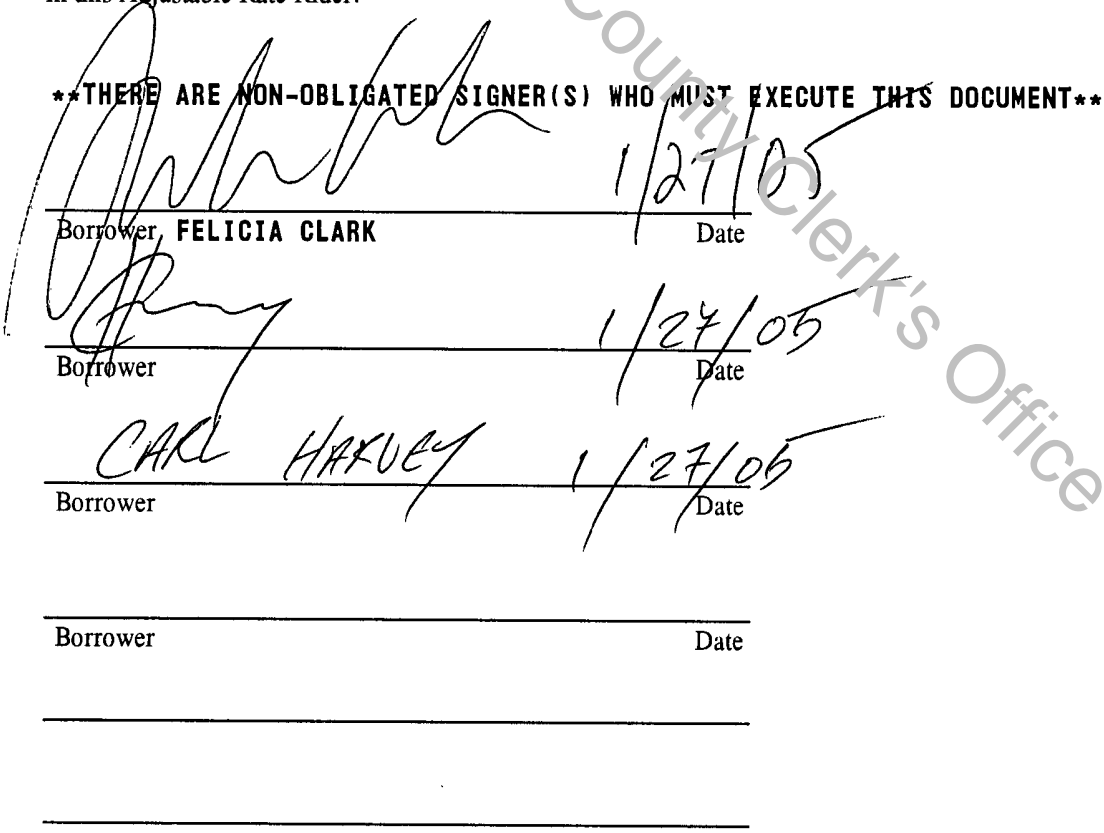 in this Adjustable Rate Rider.
County Clerk's Office
**THERE ARE NON-OBLIGATED SIGNER(S) WHO MUST EXECUTE THIS DOCUMENT**
1/27/05
Borrower, FELICIA CLARK Date
1/27/05
Borrower Date
CARL HARVEY 1/27/05
Borrower Date
Borrower Date